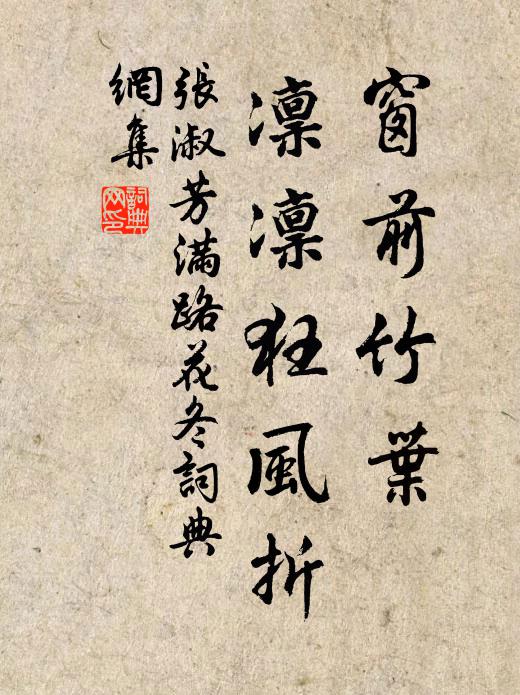 窗前竹葉
凛凛狂風折
張淑芳滿路花冬詞典
網集
詞典
网印